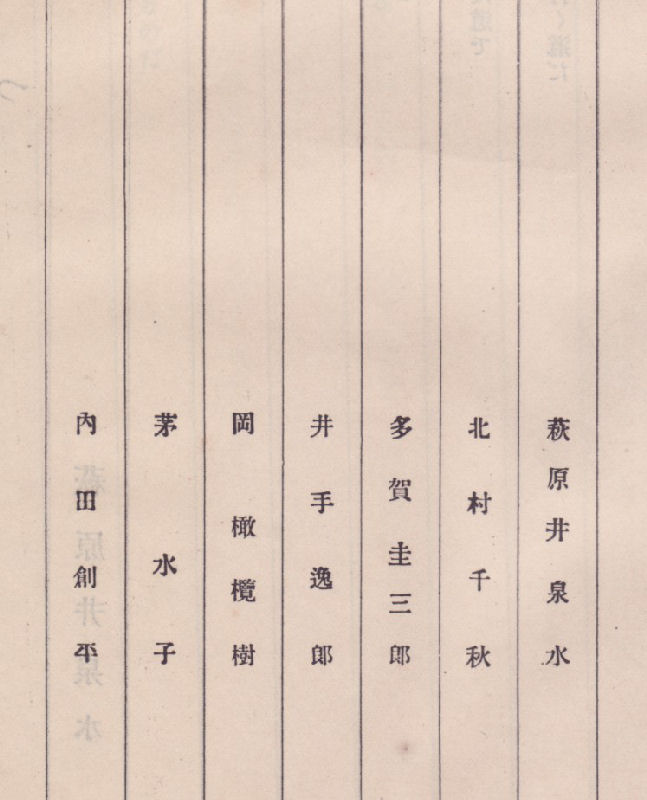 萩原井泉水
北村千秋
多賀圭三郎
井手逸郎
岡橄欖樹
茅水子
內田創平